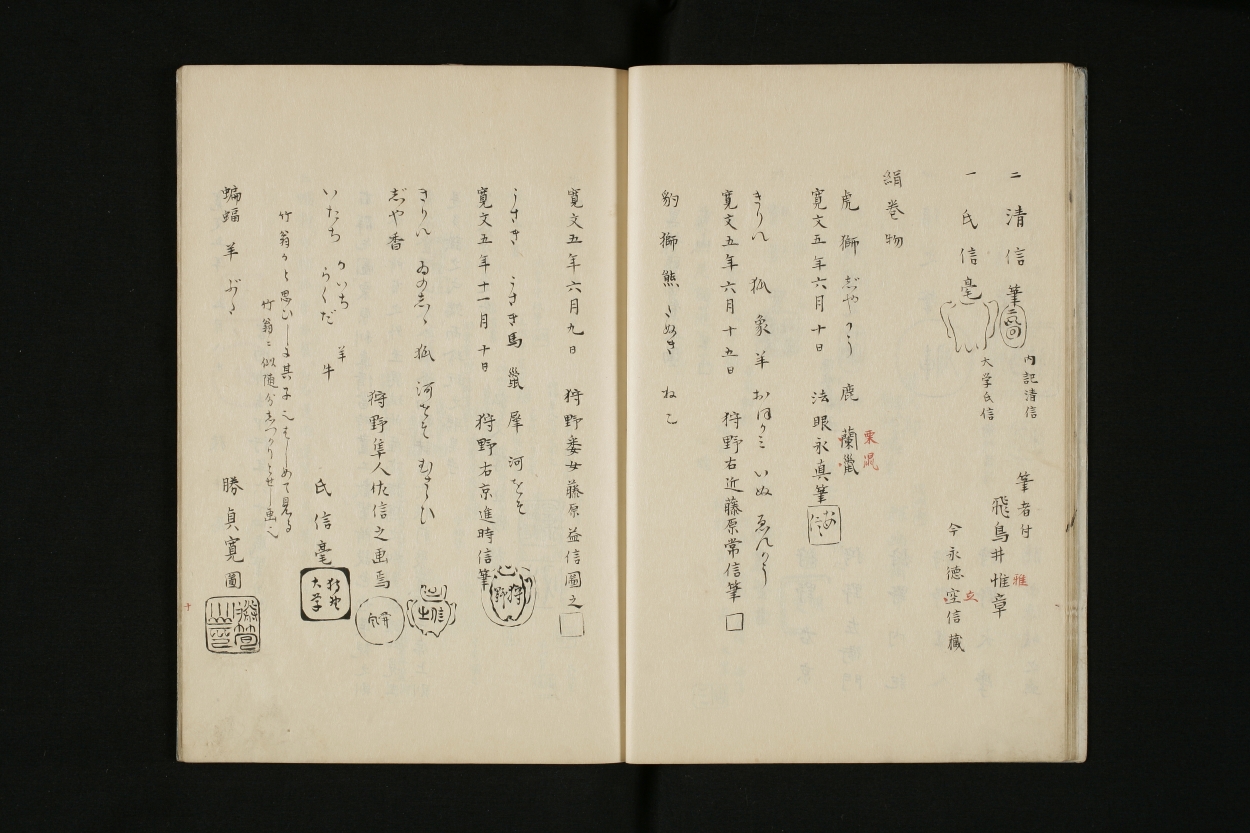 二 清信筆
内記清信
筆者付
飛鳥井惟章
雅
一 氏信毫
大学氏信
今永徳空信蔵
立
絹巻物
虎 獅 じやかう 鹿 蘭獵
栗 混
寛文五年六月十日 法眼永真筆
きりん 狐 象 羊 おほかミ いぬ ゑんかう
寛文五年六月十五日 狩野右近藤原常信筆
豹 獅 熊 たぬき ねこ
寛文五年六月九日 狩野采女藤原益信圖之
うさき うさき馬 犀 河をそ
寛文五年十一月十日 狩野右京進時信筆
狩野
きりん ゐのしゝ 狐 河をそ むさゝひ
じや香
狩野隼人佐信之画焉
いたち かいち 羊
らくだ 牛
氏信毫
狩野大学
竹翁かと思ひしに其子にもはしめて見る
竹翁ニ似随分しつかりとせし画也
蝙蝠 羊 ぶた
勝貞寛圖
十